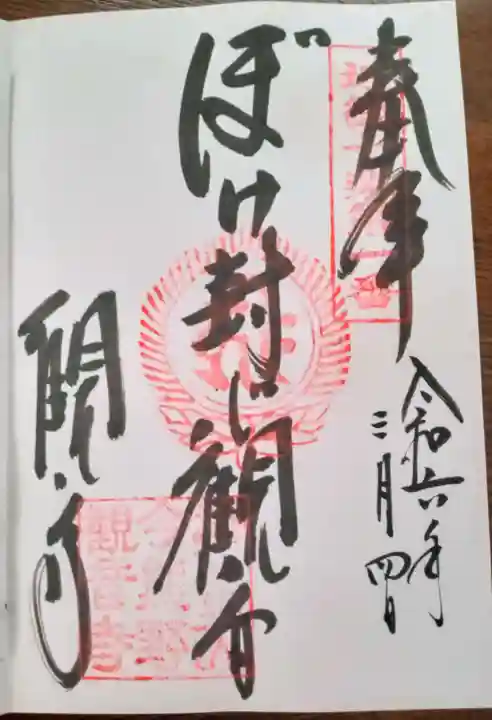 奉拝
令和六年
三月四日
ぼけ封じ観音
観音寺
今熊野
観音寺